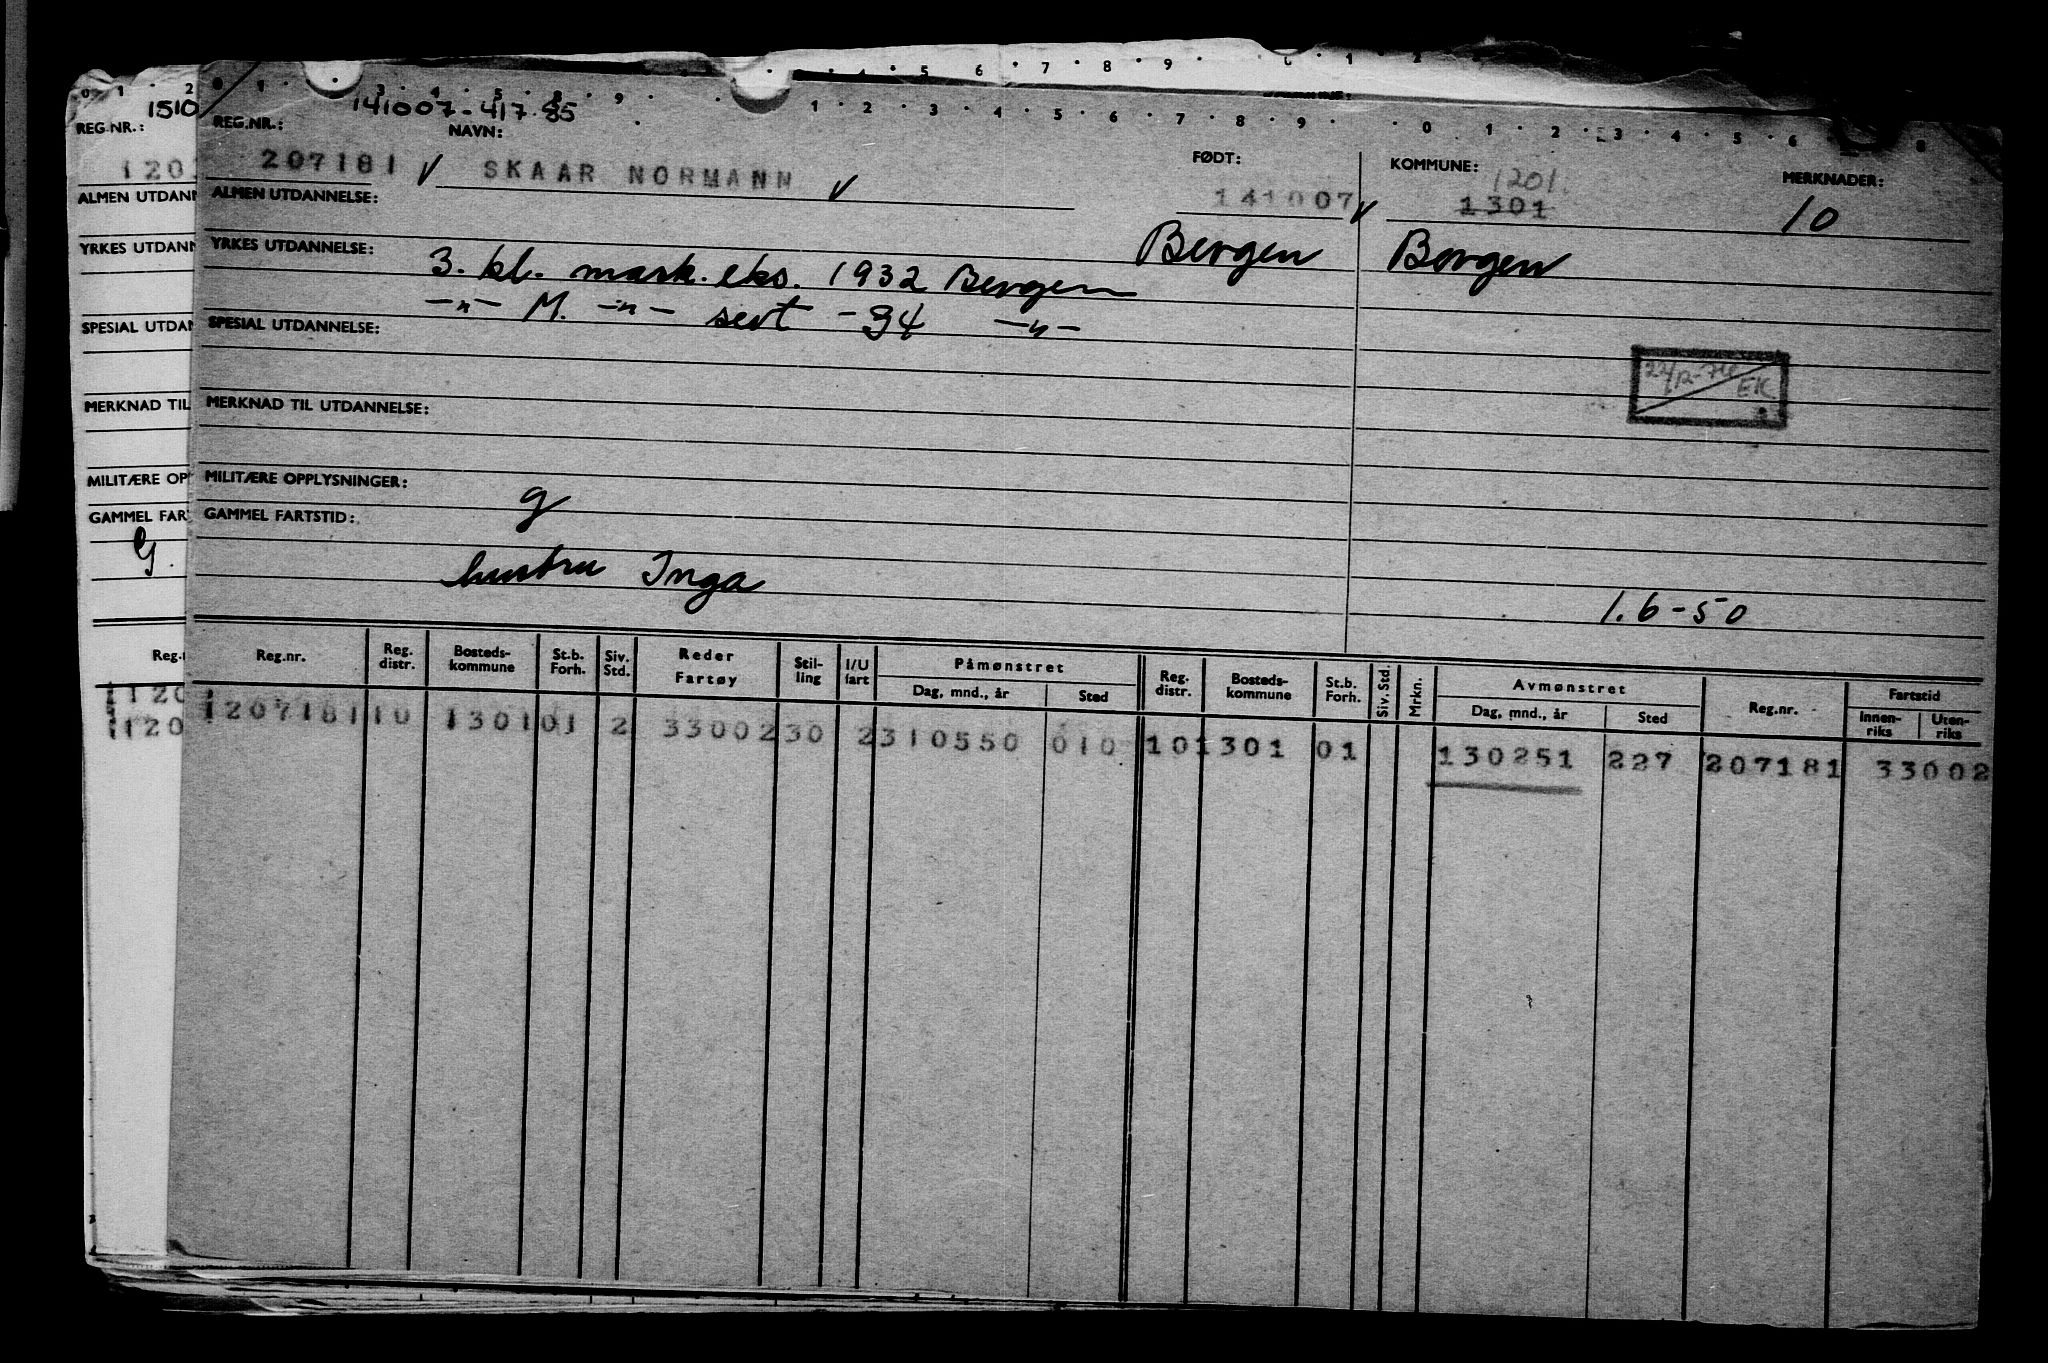 0 1 2
1510
REG.NR.:
120
ALMEN UTDANN
YRKES UTDANN
SPESIAL UTDAN
MERKNAD TIL
MILITÆRE OP
GAMMEL FAR
G.
Reg.n
1120
1120
141007-417 85
REG.NR.: NAVN: FØDT: KOMMUNE: MERKNADER:
207181 √ SKAAR NORMANN √ 141007 √ 1301 1201. 10
ALMEN UTDANNELSE:
Bergen Bergen
YRKES UTDANNELSE: 3. kl. mask. eks. 1932 Bergen
-"- M. -"- sert -34 -"-
SPESIAL UTDANNELSE:
EK
MERKNAD TIL UTDANNELSE:
MILITÆRE OPPLYSNINGER:
g
GAMMEL FARTSTID:
hustru Inga
1.6-50
Reg.nr. Reg. distr. Bosteds-kommune St.b. Forh. Siv. Std. Reder Fartøy Stil-ling I/U fart Påmønstret Dag, mnd., år Sted Reg. distr. Bosteds-kommune St.b. Forh. Siv. Std. Mrkn. Avmønstret Dag, mnd., år Sted Reg.nr. Fartstid Innen-riks Uten-riks
1207181 10 1301 01 2 33002 30 2 310550 010 10 1301 01 130251 227 207181 33002